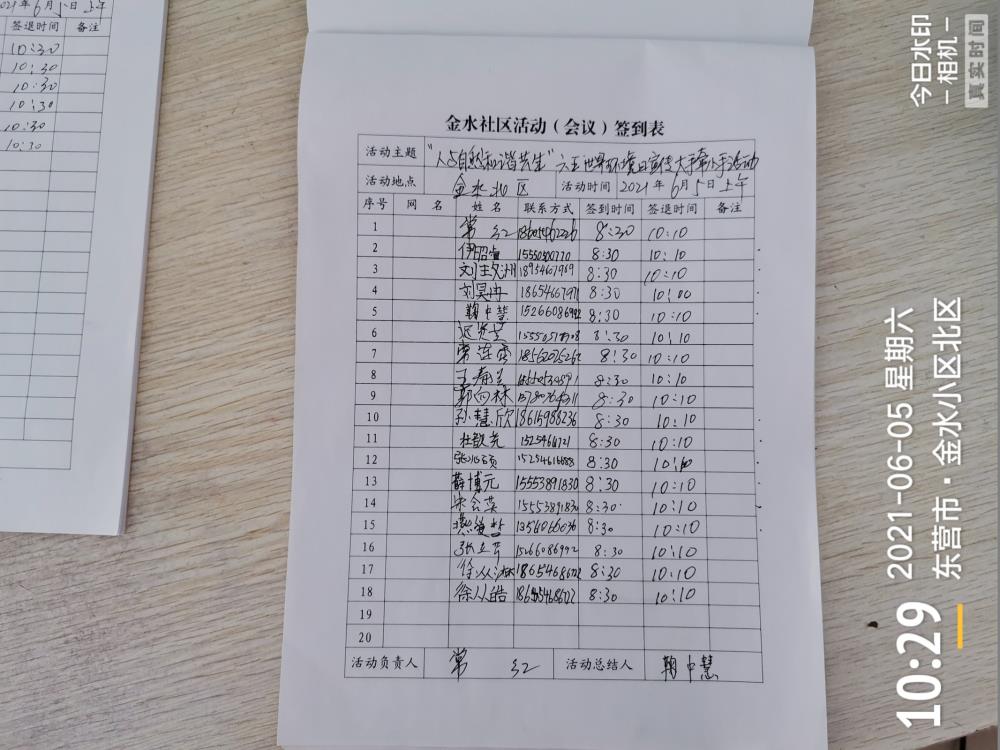 2021年6月5日上午
签退时间 备注
10:30
10:30
10:30
10:30
10:30
10:30
金水社区活动（会议）签到表
活动主题 "人与自然和谐共生"六五世界环境日宣传大手牵小手活动
活动地点 金水北区 活动时间 2021年6月5日上午
序号 网名 姓名 联系方式 签到时间 签退时间 备注
1 常红 8:30 10:10
2 8:30 10:10
3 18954607969 8:30 10:10
4 刘昊冉 18654667971 8:30 10:00
5 鞠中慧 15266086992 8:30 10:10
6 8:30 10:10
7 8:30 10:10
8 王寿兰 8:30 10:10
9 郭向林 8:30 10:10
10 孙慧欣 18615988236 8:30 10:10
11 杜敏尧 8:30 10:10
12 8:30 10:10
13 薛博元 15553891830 8:30 10:10
14 宋会英 15553891830 8:30 10:10
15 8:30 10:10
16 15266086992 8:30 10:10
17 18654686722 8:30 10:10
18 徐从皓 8:30 10:10
19
20
活动负责人 常红 活动总结人 鞠中慧
今日水印
相机
真实时间
10:29
2021-06-05 星期六
东营市·金水小区北区